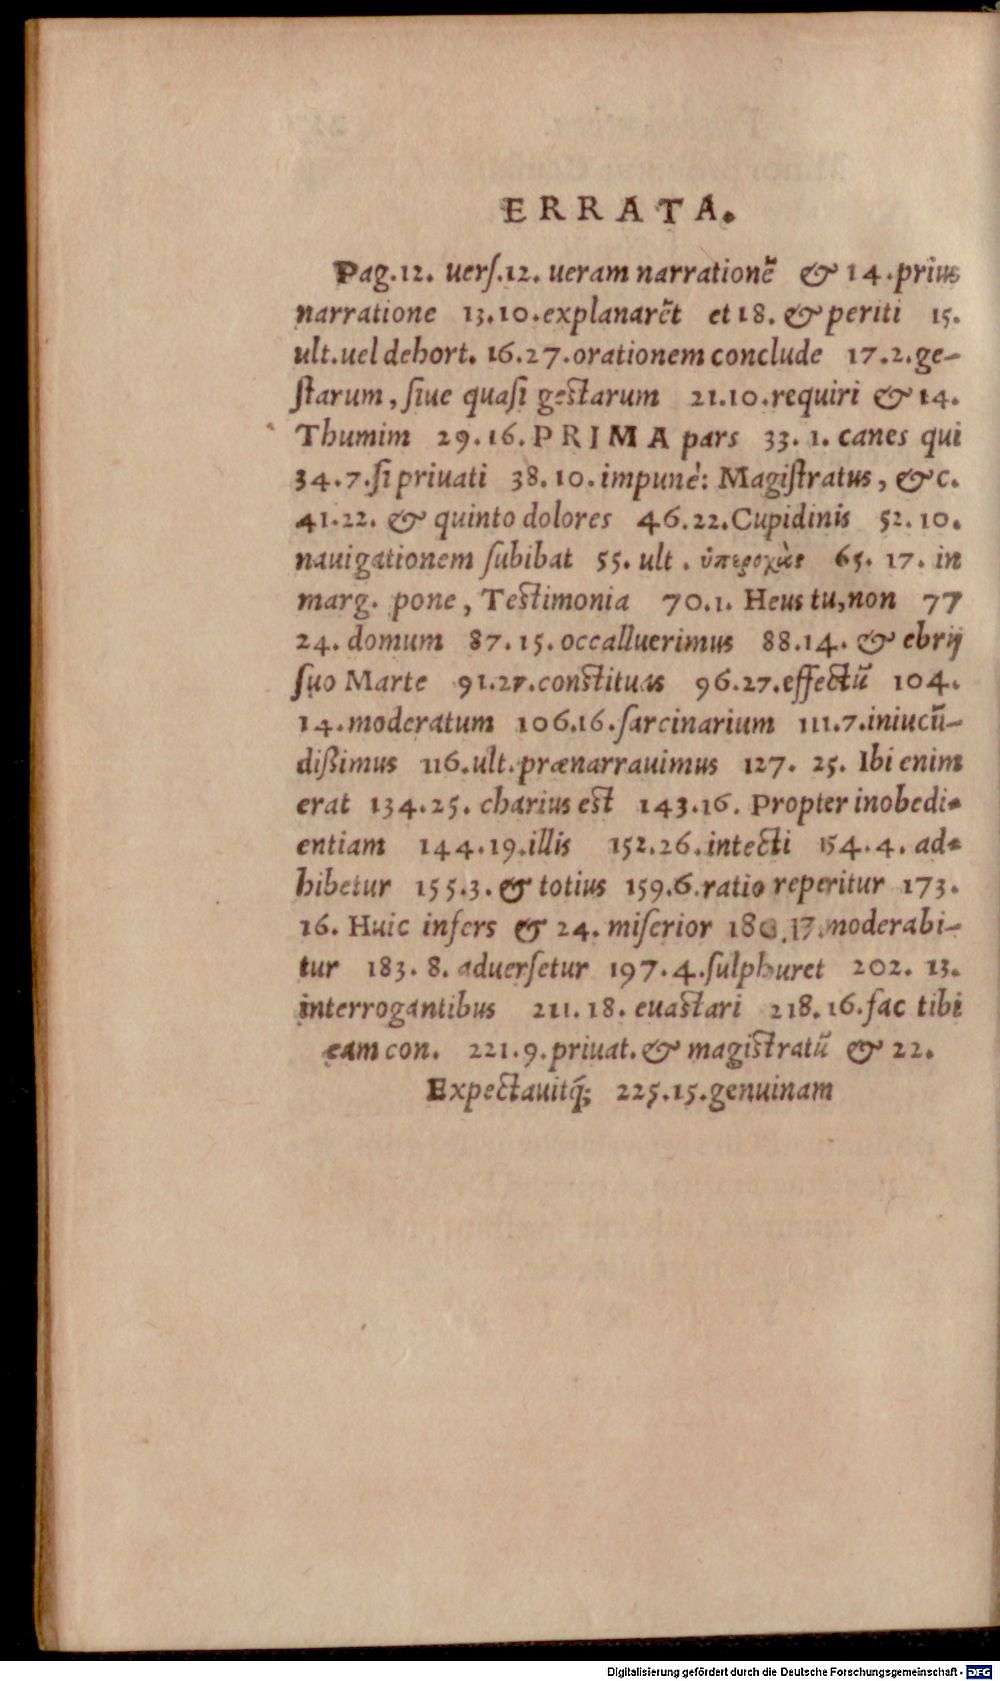 ERRATA.
Pag.12. uerſ.12. ueram narrationē & 14.prius
narratione 13.10.explanarēt et 18. & periti 15.
ult.uel dehort. 16.27.orationem conclude 17.2.ge-
ſtarum, ſiue quaſi geſtarum 21.10.requiri & 14.
Thumim 29.16.PRIMA pars 33. 1. canes qui
34.7.ſi priuati 38.10.impunè: Magiſtratus, &c.
41.22. & quinto dolores 46.22.Cupidinis 52.10.
nauigationem ſubibat 55. ult. 65. 17. in
marg. pone, Teſtimonia 70.1. Heus tu,non 77
24. domum 87.15.occalluerimus 88.14. & ebrij
ſuo Marte 91.27.conſtituas 96.27.effectū 104.
14.moderatum 106.16.ſarcinarium 111.7.iniucū-
dißimus 116.ult.prænarrauimus 127. 25. Ibi enim
erat 134.25. charius eſt 143.16. Propter inobedi-
entiam 144.19.illis 152.26.intecti 154.4. ad-
hibetur 155.3. & totius 159.6.ratio reperitur 173.
16. Huic infers & 24. miſerior 180.17.moderabi-
tur 183. 8. aduerſetur 197.4.ſulphuret 202. 13.
interrogantibus 211.18. euaſtari 218.16.fac tibi
eam con. 221.9.priuat.& magiſtratū & 22.
Expectauitq́; 225.15.genuinam
Digitalisierung gefördert durch die Deutsche Forschungsgemeinschaft - DFG